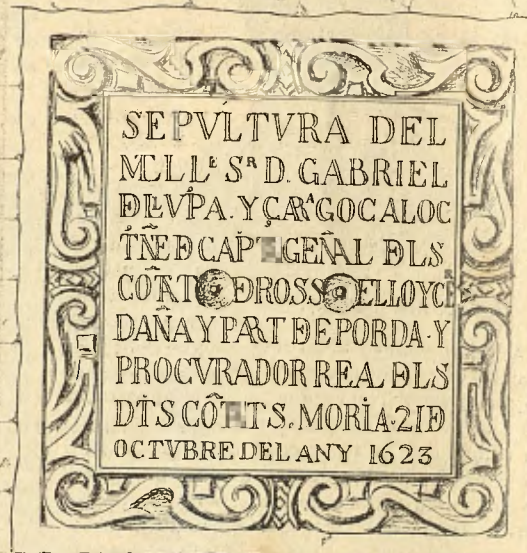 SEPVLTVRA DEL
MLLᵉ Sᴿ D. GABRIEL
DLLVPA. Y ÇARᴬGOÇA LOC
TÑE D CAPᵀ GEÑAL DLS
DROSS ELLO Y
DAÑA Y PART DE PORDA. Y
PROCVRADOR REAL DLS
DTS MORI A. 21 D
OCTVBRE DEL ANY 1623